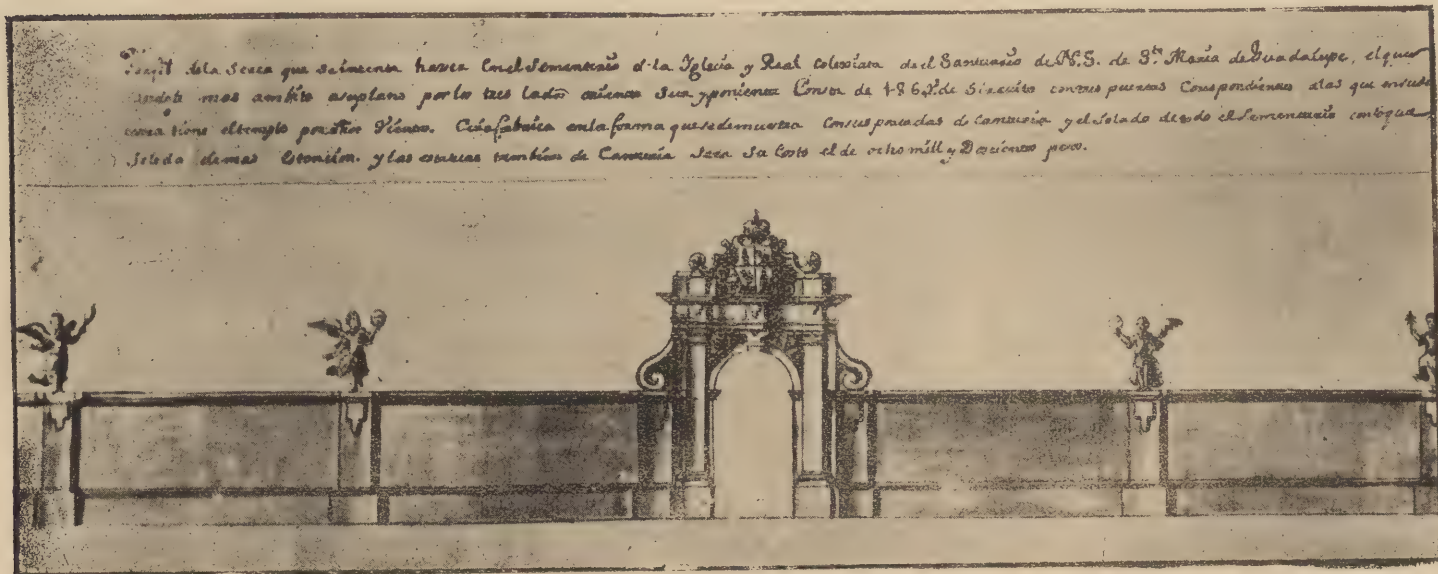 dela Serca que seintenta haser Enel Sementerio d-la Yglecia y Real Colexiata de el Santuario de N.S. de S.ta Maria de Guadalupe, elque
mas ambito asuplano por los tres lados oriente Sur y poniente Consta de de Sircuito contres puertas Corespondientes alas que
tiene eltemplo por Vientos. Cuia fabrica enlaforma quesedemuestra Consus portadas de Canteria y elsolado detodo el Sementerio
Solada demas y las tambien de Canteria Sera Su Costo el de ocho mill y Docientos pesos.